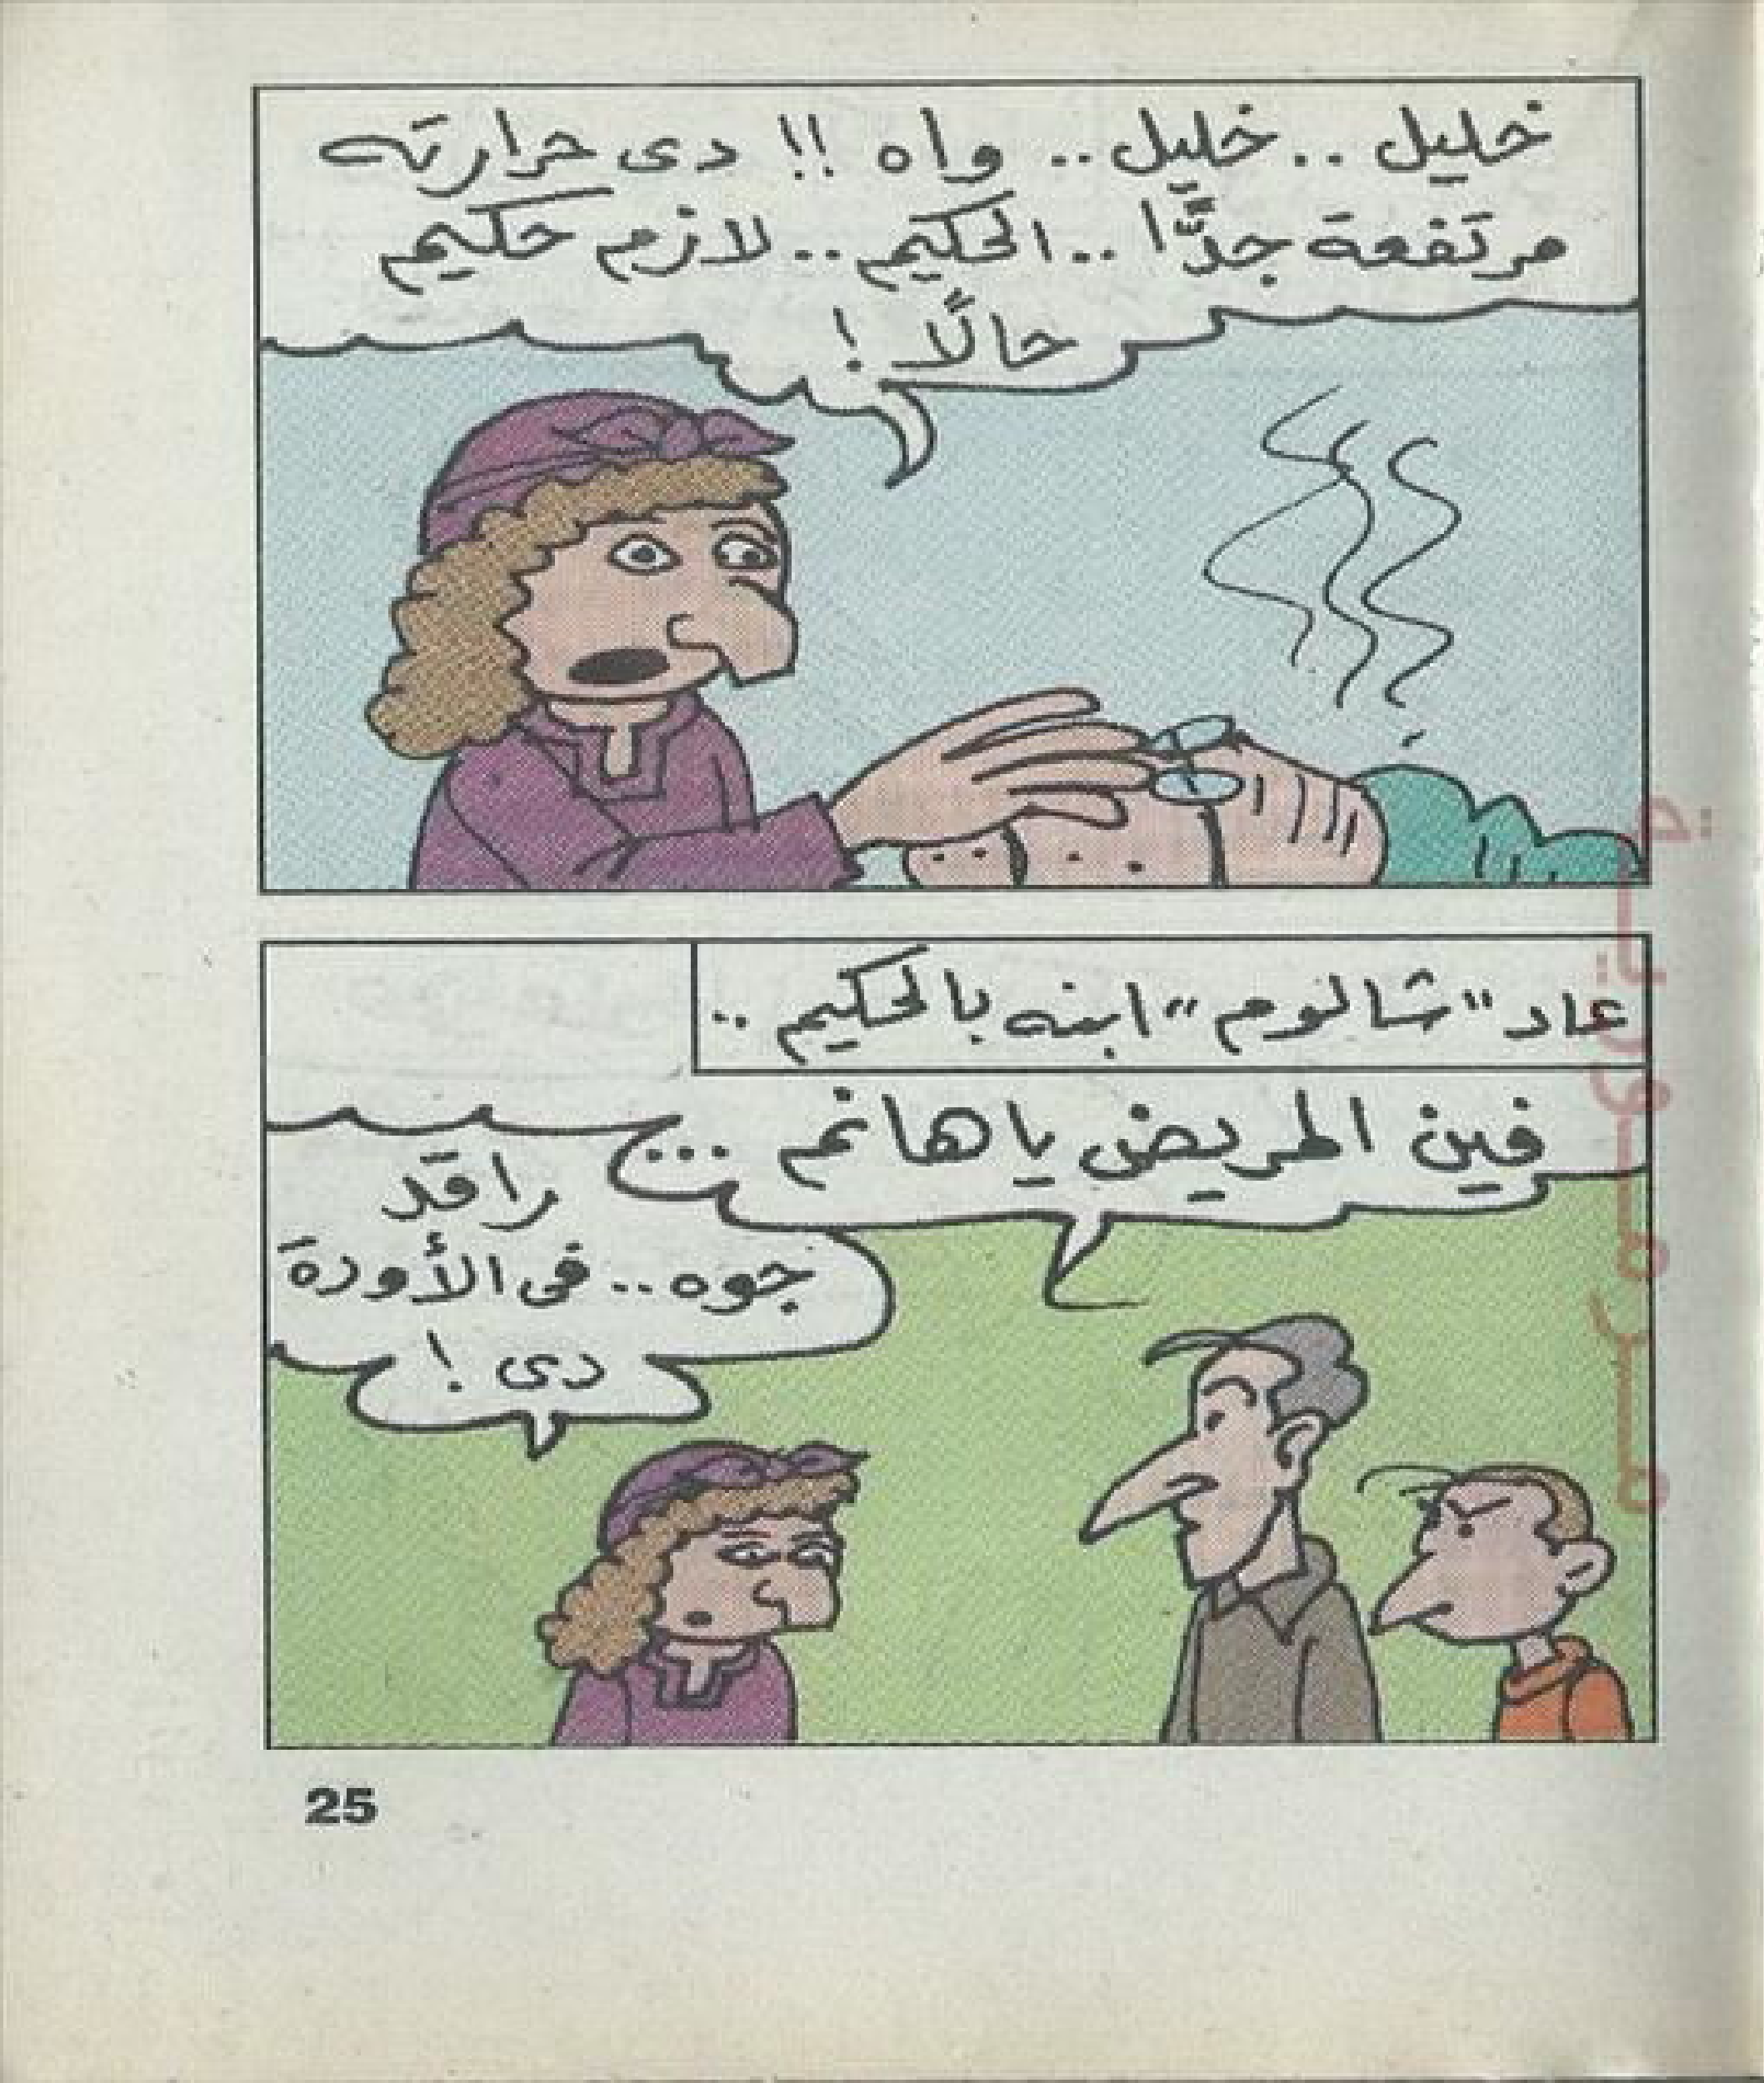 خليل .. خليل .. واه !! دى حرارته
مرتفعة جدًّا .. الحكيم .. لازم حكيم
حالًا !
عاد "شالوم" ابنه بالحكيم ..
فين المريض يا هانم ...
راقد
جوه .. فى الأودة
دى !
25